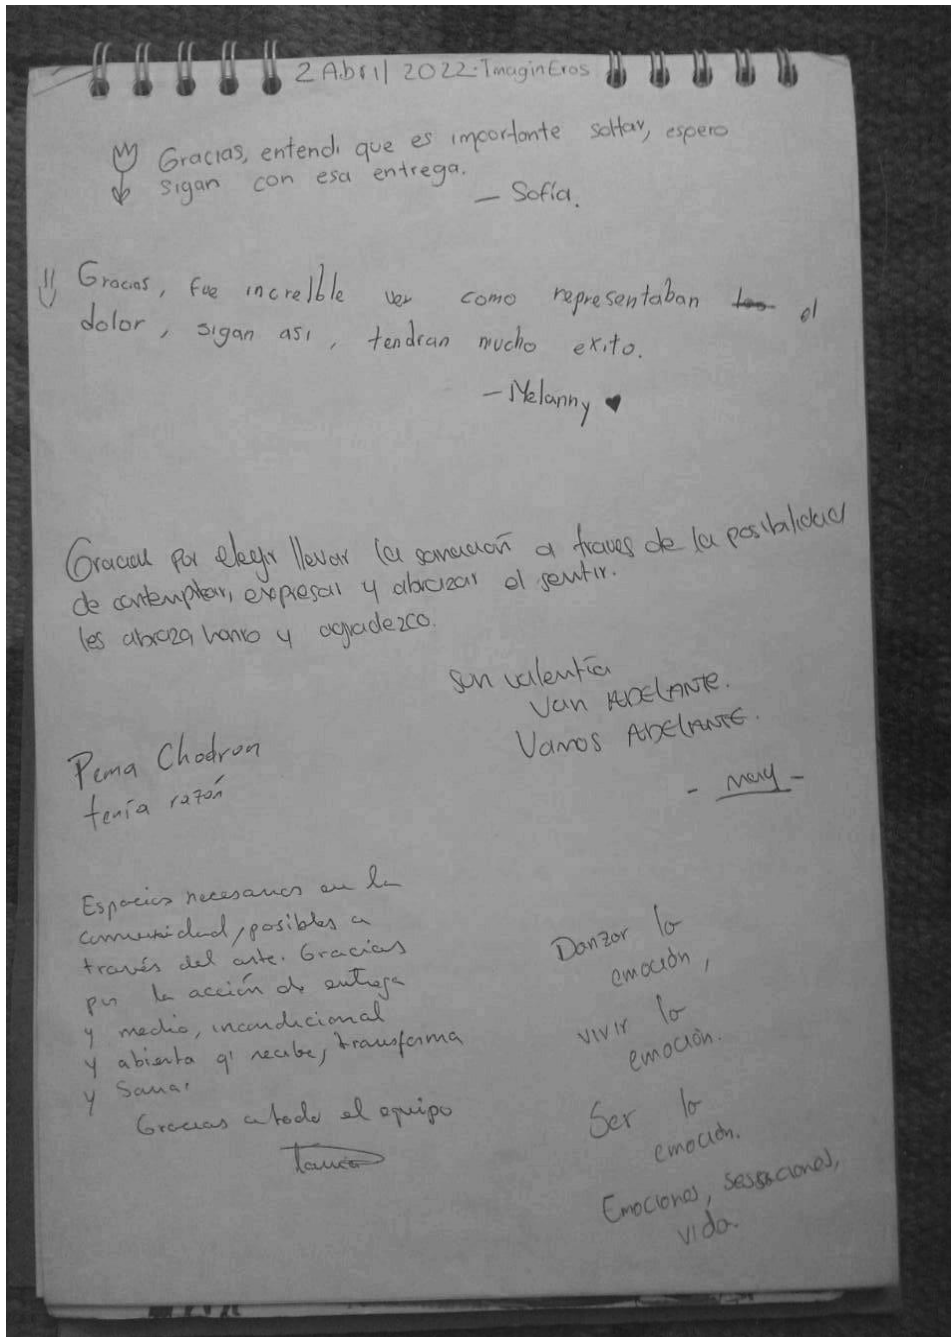 2 Abril 2022-ImaginEros
Gracias, entendi que es importante soltar, espero
sigan con esa entrega.
— Sofía.
Gracias, fue increíble ver como representaban el
dolor, sigan asi, tendran mucho exito.
- Melanny ♥
Gracias por elegir llevar la sanación a traves de la posibilidad
de contemplar, expresar y abrazar el sentir.
les abraza y agradezco.
Son valentía
Van ADELANTE.
Vamos ADELANTE.
- Mary -
Pema Chodron
tenía razón
Espacios necesarios en la
comunidad, posibles a
través del arte. Gracias
por la acción de entrega
y medio, incondicional
y abierta q' recibe, transforma
y Sana.
Gracias a todo el equipo
Danzar la
emoción,
vivir la
emoción.
Ser la
emoción.
Emociones, sensaciones,
vida.